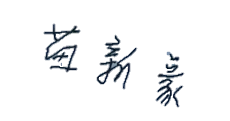 苗新豪